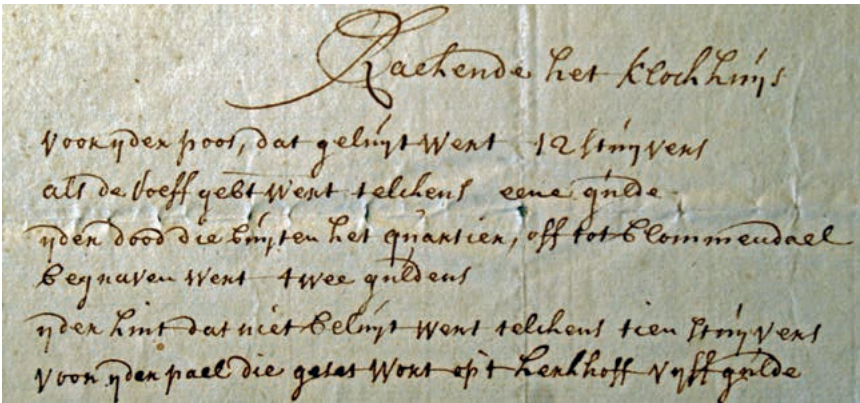 Rackende het Klockhuijs
voor ijder poos, dat geluijt wert 12 stuijvers
als de roeff gebt wert telckens eene gulde
ijder dood die buijten het quartier, off tot Blommendael
begraven wert twee guldens
ijder kint dat niet beluijt wert telckens tien stuijvers
voor ijder pael die geset wort op't kerkhoff vijff gulde